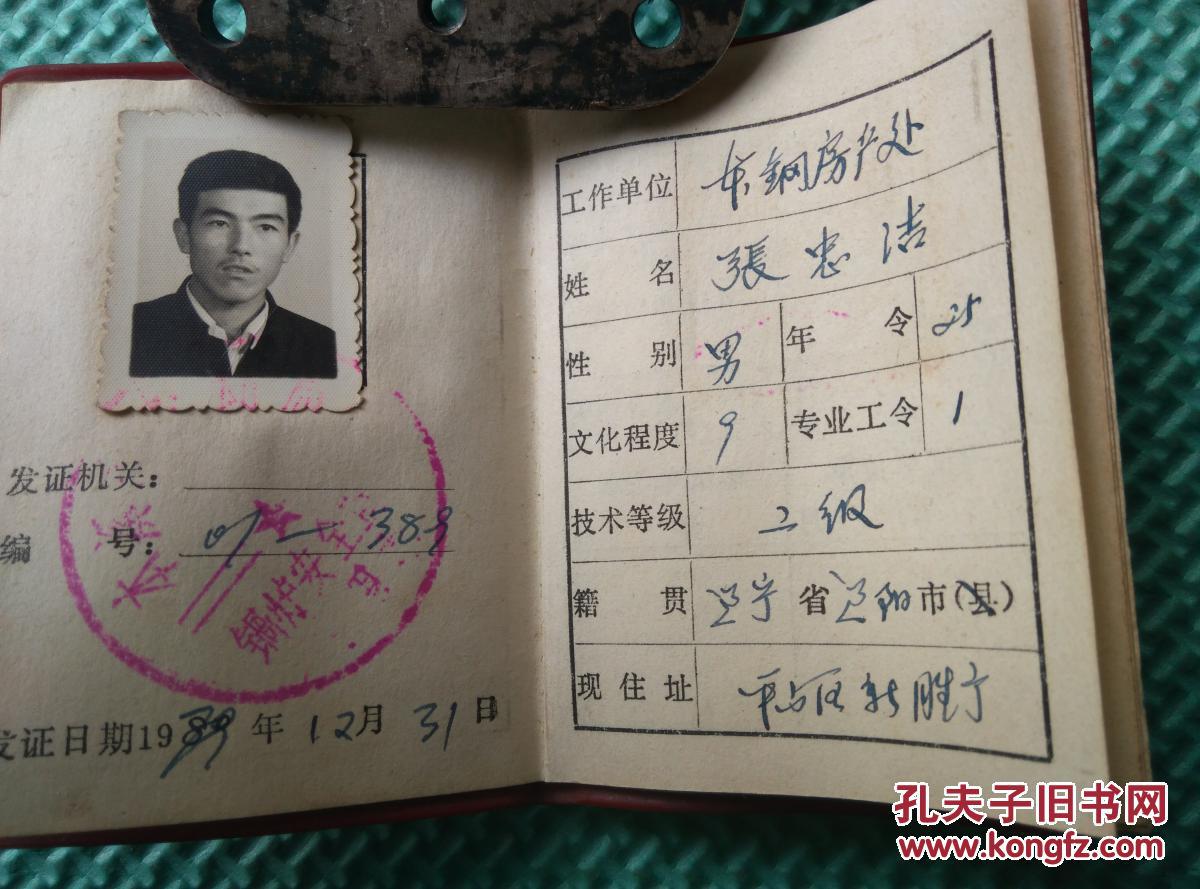 发证机关：
编 号： 07-389
锅炉安全
发证日期1989年12月31日
工作单位 本钢房产处
姓 名 張忠洁
性 别 男 年 令 25
文化程度 9 专业工令 1
技术等级 二级
籍 贯 辽宁省辽阳市（县）
现 住 址 平山区新胜宁
孔夫子旧书网
www.kongfz.com